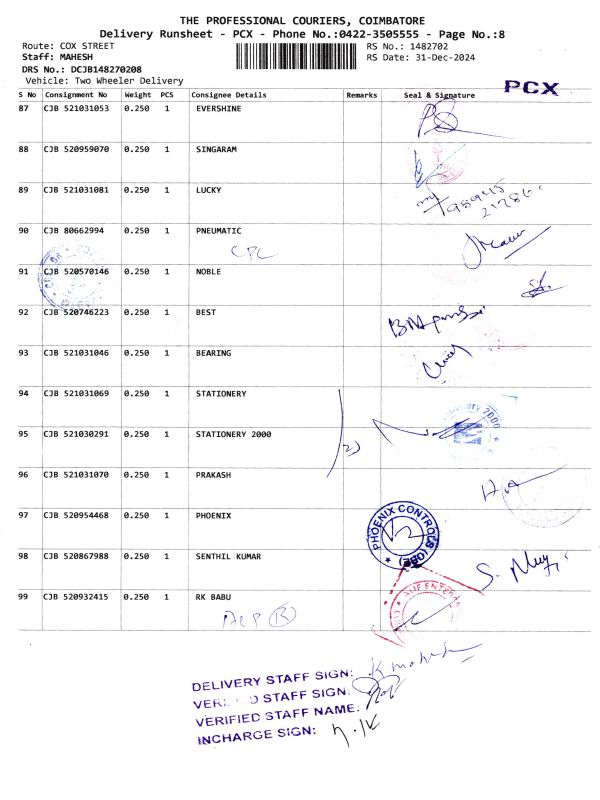 THE PROFESSIONAL COURIERS, COIMBATORE
Delivery Runsheet - PCX - Phone No.:0422-3505555 - Page No.:8
Route: COX STREET RS No.: 1482702
Staff: MAHESH RS Date: 31-Dec-2024
DRS No.: DCJB148270208
Vehicle: Two Wheeler Delivery
PCX
S No Consignment No Weight PCS Consignee Details Remarks Seal & Signature
87 CJB 521031053 0.250 1 EVERSHINE
88 CJB 520959070 0.250 1 SINGARAM
89 CJB 521031081 0.250 1 LUCKY
90 CJB 80662994 0.250 1 PNEUMATIC
CPC
91 CJB 520570146 0.250 1 NOBLE
92 CJB 520746223 0.250 1 BEST
93 CJB 521031046 0.250 1 BEARING
94 CJB 521031069 0.250 1 STATIONERY
95 CJB 521030291 0.250 1 STATIONERY 2000
2)
96 CJB 521031070 0.250 1 PRAKASH
97 CJB 520954468 0.250 1 PHOENIX
PHOENIX CONTROLS (CBE)
98 CJB 520867988 0.250 1 SENTHIL KUMAR
99 CJB 520932415 0.250 1 RK BABU
DELIVERY STAFF SIGN:
STAFF SIGN:
VERIFIED STAFF NAME:
INCHARGE SIGN: